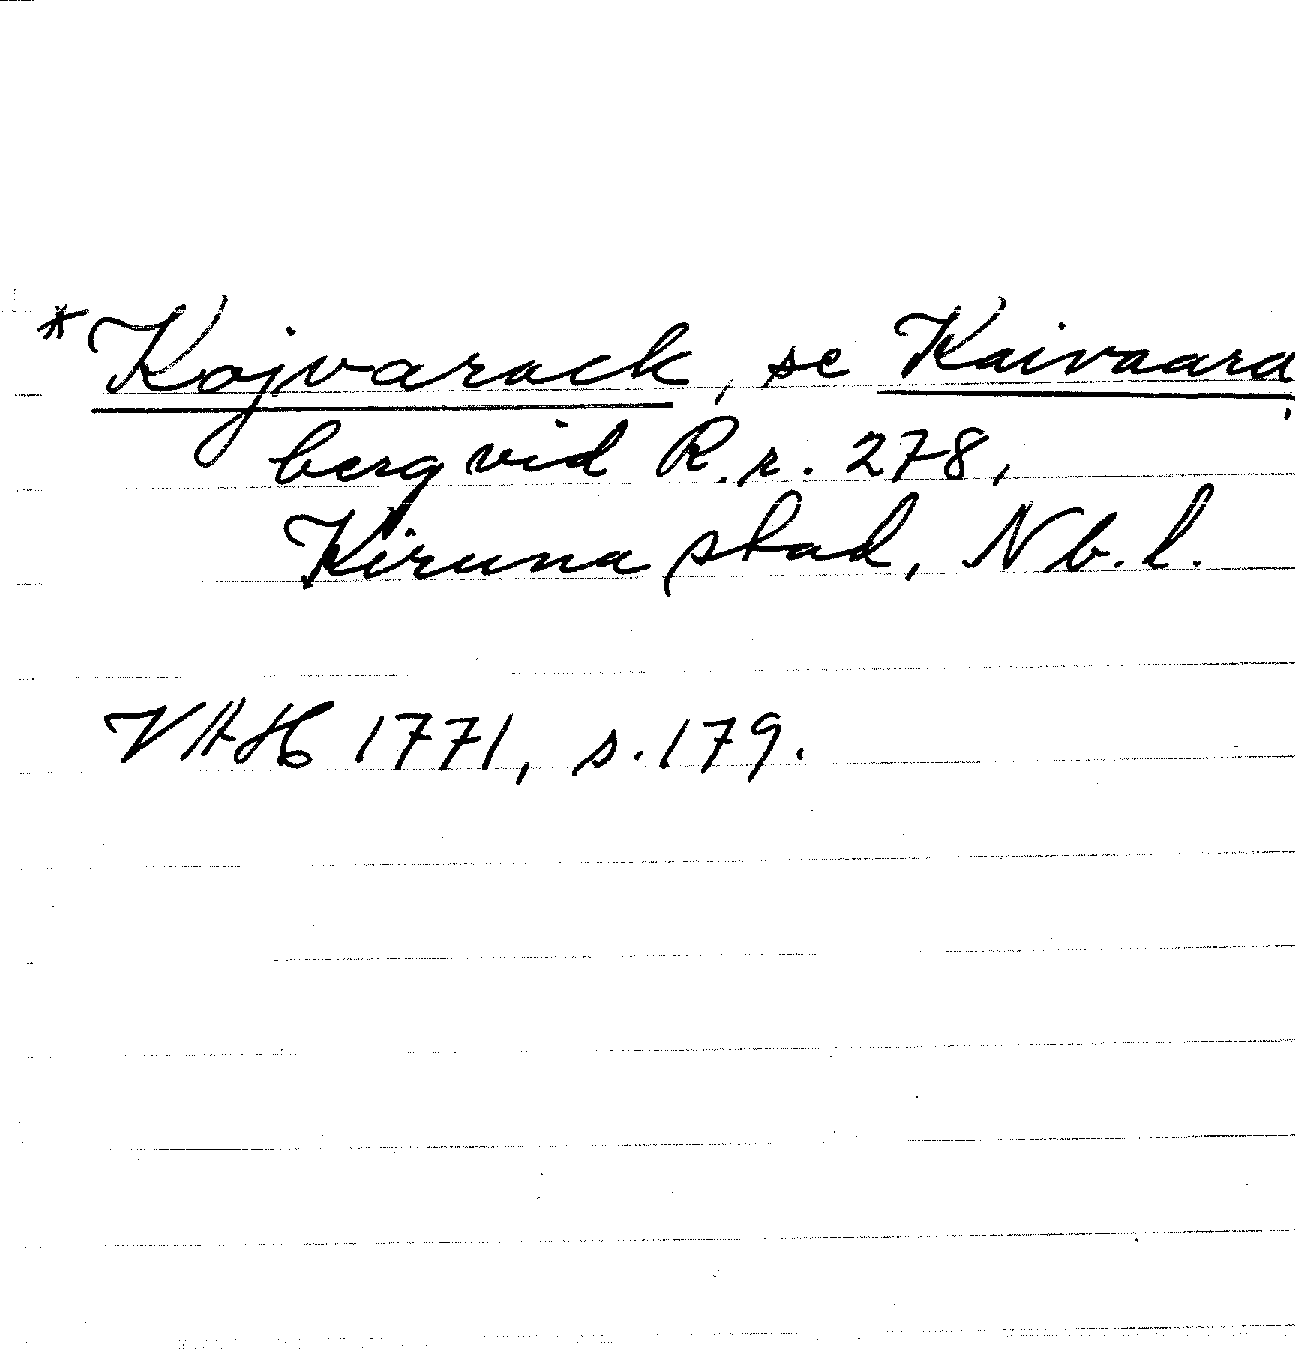 *Kojvarack, se Kaivaara,
berg vid R.r. 278,
Kiruna stad, Nb. l.
VAH 1771, s. 179.